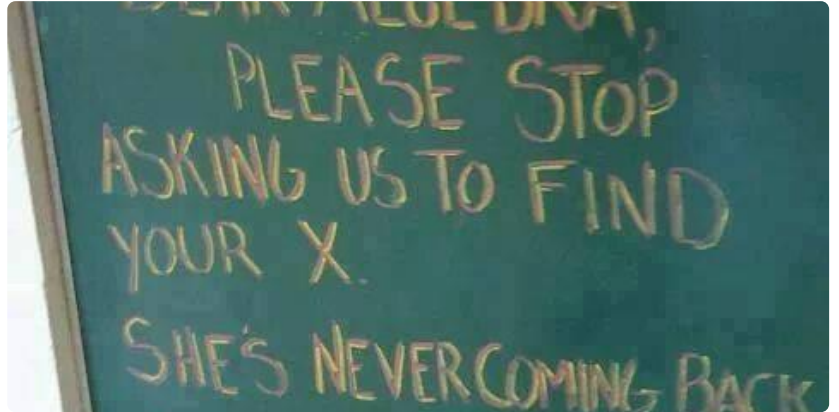 DEAR ALGEBRA,
PLEASE STOP
ASKING US TO FIND
YOUR X.
SHE'S NEVER COMING BACK